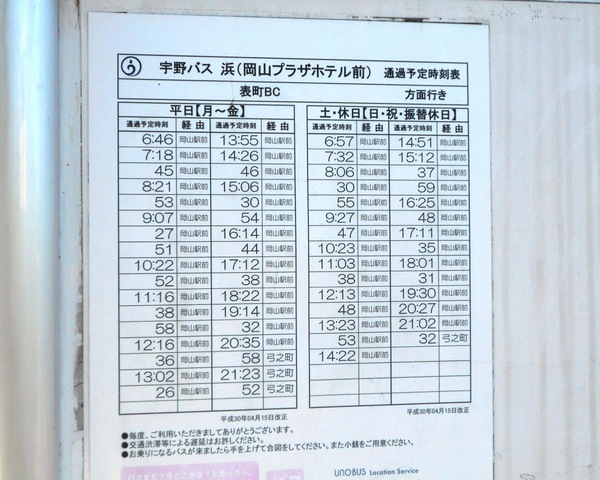 宇野バス 浜(岡山プラザホテル前) 通過予定時刻表
表町BC 方面行き
平日【月~金】
通過予定時刻 経由 通過予定時刻 経由
6:46 岡山駅前 13:55 岡山駅前
7:18 岡山駅前 14:26 岡山駅前
45 岡山駅前 46 岡山駅前
8:21 岡山駅前 15:06 岡山駅前
53 岡山駅前 30 岡山駅前
9:07 岡山駅前 54 岡山駅前
27 岡山駅前 16:14 岡山駅前
51 岡山駅前 44 岡山駅前
10:22 岡山駅前 17:12 岡山駅前
52 岡山駅前 38 岡山駅前
11:16 岡山駅前 18:22 岡山駅前
38 岡山駅前 19:14 岡山駅前
58 岡山駅前 32 岡山駅前
12:16 岡山駅前 20:35 岡山駅前
36 岡山駅前 58 弓之町
13:02 岡山駅前 21:23 弓之町
26 岡山駅前 52 弓之町
平成30年04月15日改正
土・休日【日・祝・振替休日】
通過予定時刻 経由 通過予定時刻 経由
6:57 岡山駅前 14:51 岡山駅前
7:32 岡山駅前 15:12 岡山駅前
8:06 岡山駅前 37 岡山駅前
30 岡山駅前 59 岡山駅前
55 岡山駅前 16:25 岡山駅前
9:27 岡山駅前 48 岡山駅前
47 岡山駅前 17:11 岡山駅前
10:23 岡山駅前 35 岡山駅前
11:03 岡山駅前 18:01 岡山駅前
38 岡山駅前 31 岡山駅前
12:13 岡山駅前 19:30 岡山駅前
48 岡山駅前 20:27 岡山駅前
13:23 岡山駅前 21:02 岡山駅前
53 岡山駅前 32 弓之町
14:22 岡山駅前
平成30年04月15日改正
●毎度、ご利用いただきましてありがとうございます。
●交通渋滞等による遅延はお許しください。
●お乗りになるバスが来ましたら手を上げて合図をしてください。また小銭をご用意ください。
UNOBUS Location Service